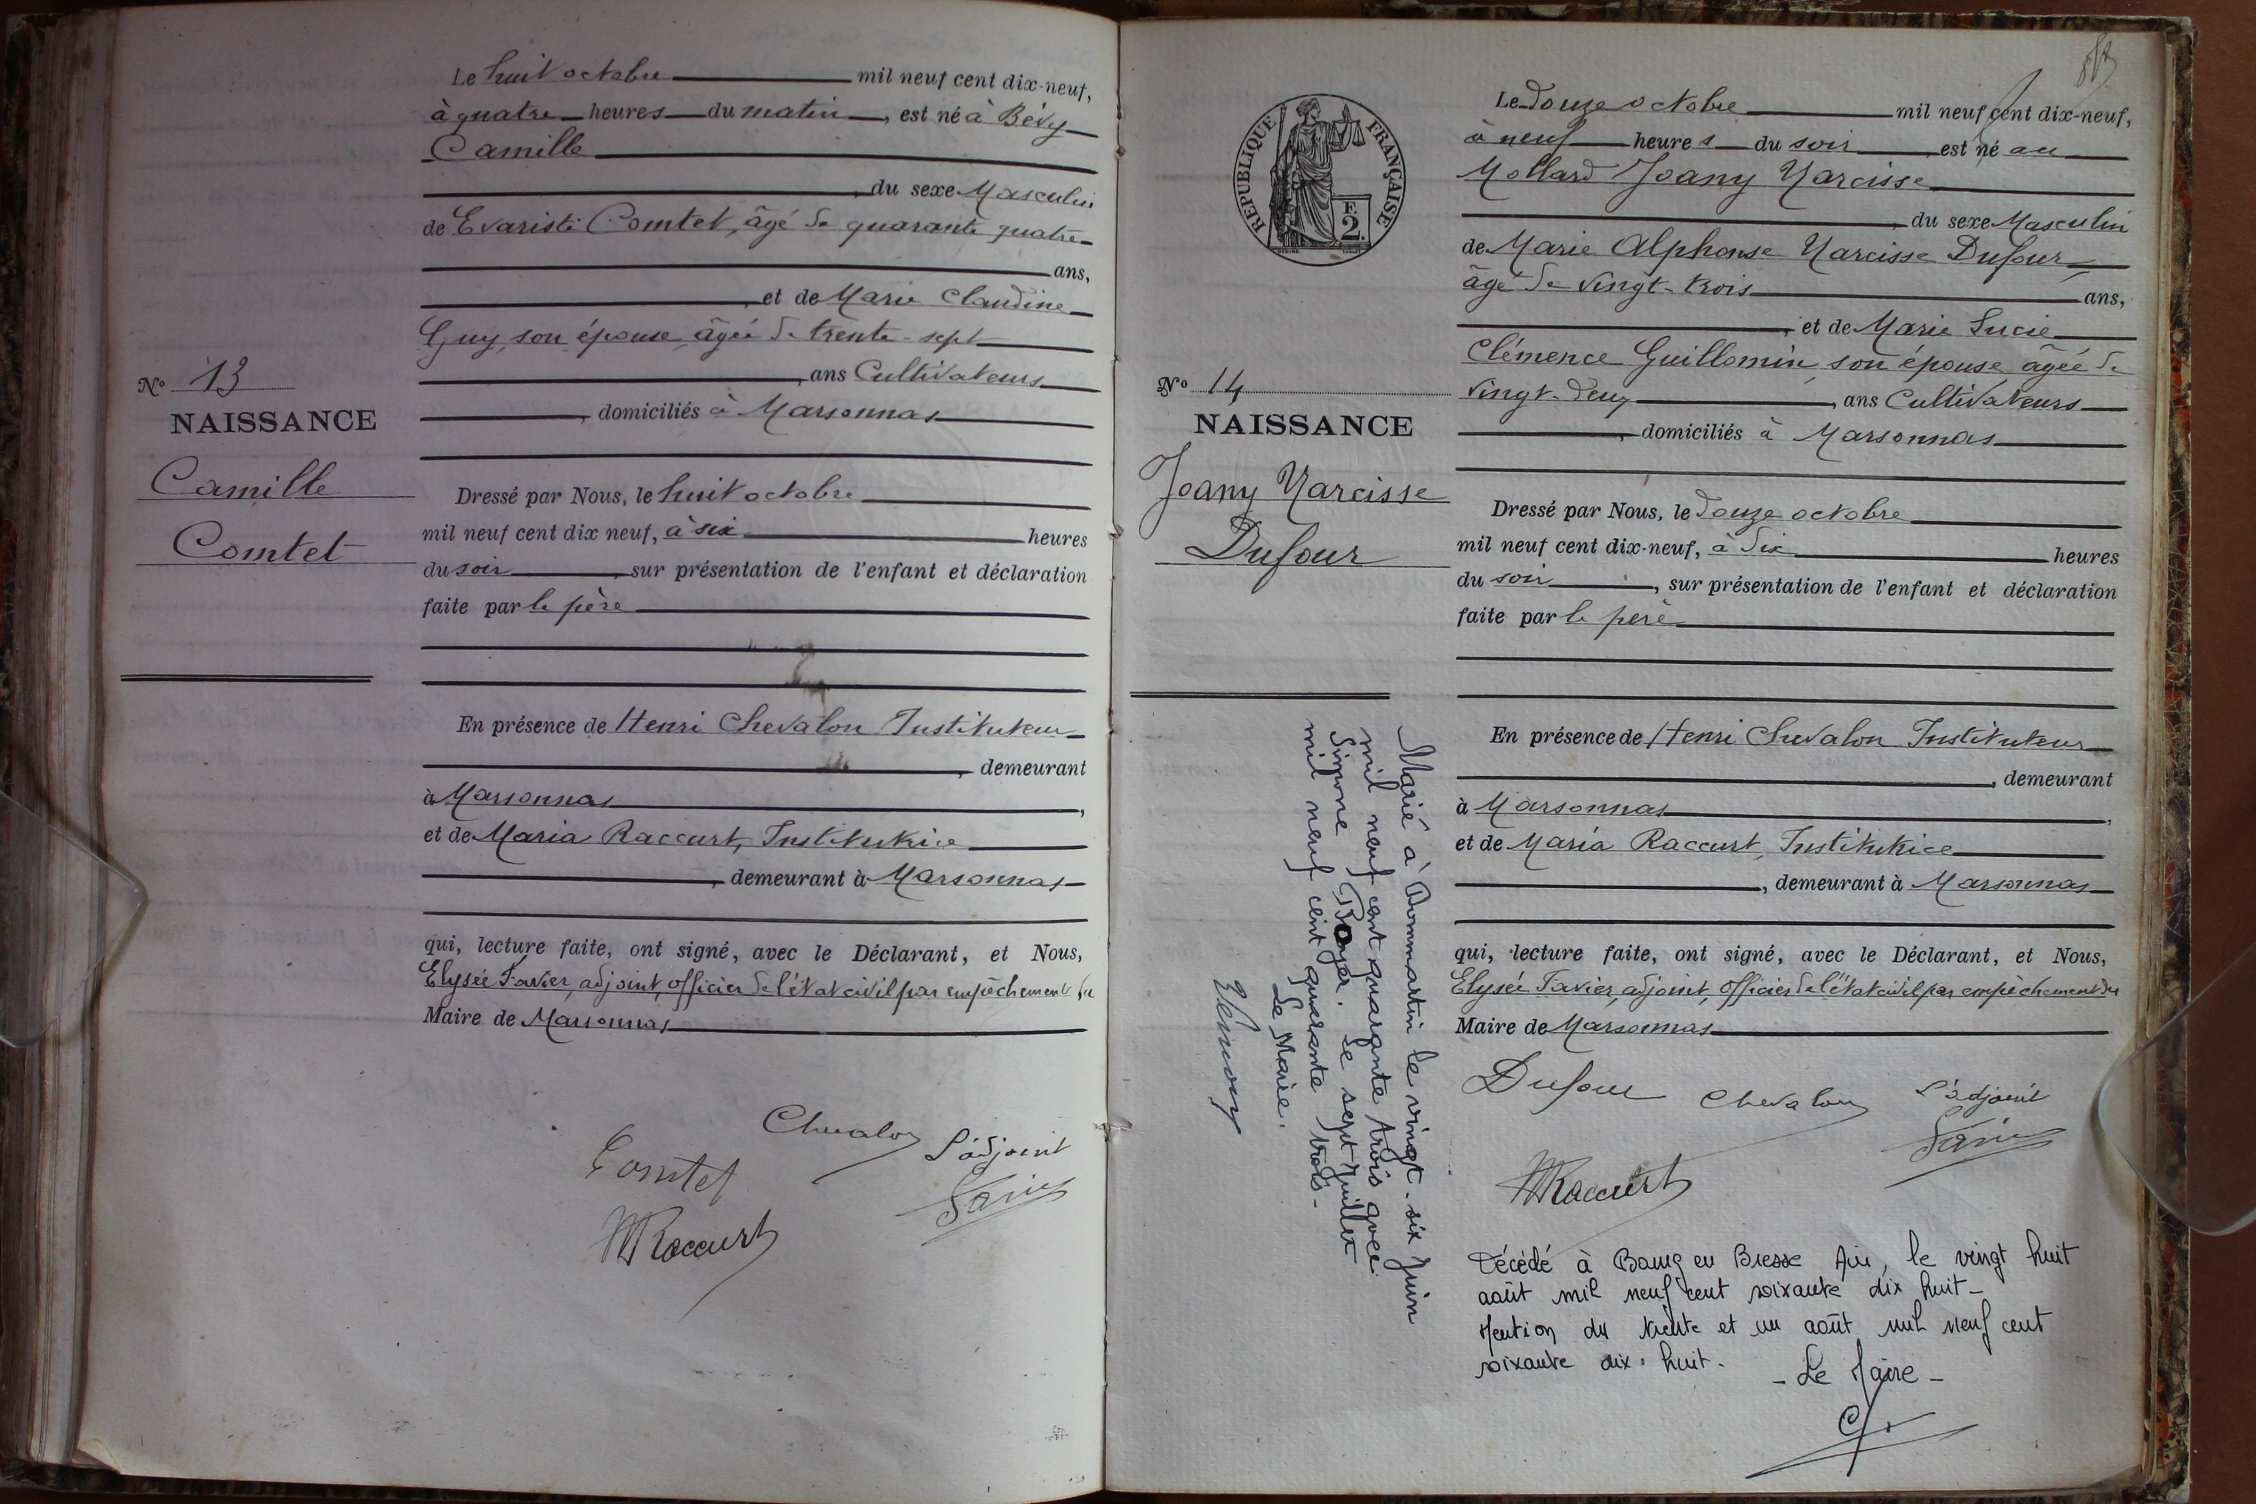 Le huit octobre mil neuf cent dix-neuf,
à quatre heures du matin, est né à Bévy
Camille
, du sexe Masculin
de Evariste Comtet, âgé de quarante quatre
ans,
, et de Marie Claudine
Guy, son épouse, âgée de trente-sept
, ans Cultivateurs
, domiciliés à Marsonnas
Nº 13
NAISSANCE
Camille
Comtet
Dressé par Nous, le huit octobre
mil neuf cent dix neuf, à six heures
du soir, sur présentation de l'enfant et déclaration
faite par le père
En présence de Henri Chevalon Instituteur
, demeurant
à Marsonnas,
et de Maria Raccurt, Institutrice
, demeurant à Marsonnas
qui, lecture faite, ont signé, avec le Déclarant, et Nous,
Elysée Favier, adjoint, officier de l'état civil par empêchement du
Maire de Marsonnas
Chevalon
L'adjoint
Comtet
Favier
MRaccurt
REPUBLIQUE FRANÇAISE
2
Le douze octobre mil neuf cent dix-neuf,
à neuf heures du soir est né au
Mollard Joany Narcisse
, du sexe Masculin
de Marie Alphonse Narcisse Dufour,
âgé de vingt-trois ans,
, et de Marie Lucie
Clémence Guillomin, son épouse âgée de
vingt-deux, ans Cultivateurs
, domiciliés à Marsonnas
Nº 14
NAISSANCE
Joany Narcisse
Dufour
Dressé par Nous, le douze octobre
mil neuf cent dix-neuf, à dix heures
du soir, sur présentation de l'enfant et déclaration
faite par le père
En présence de Henri Chevalon Instituteur
, demeurant
à Marsonnas,
et de Maria Raccurt, Institutrice
, demeurant à Marsonnas
qui, lecture faite, ont signé, avec le Déclarant, et Nous,
Elysée Favier, adjoint, officier de l'état civil par empêchement du
Maire de Marsonnas
Dufour
Chevalon
L'adjoint
Favier
MRaccurt
Marié à Dommartin le vingt-six Juin
mil neuf cent quarante trois avec
Simone Boyer. Le sept Juillet
mil neuf cent quarante trois-
Le Maire.
Décédé à Bourg en Bresse Ain, le vingt huit
août mil neuf cent soixante dix huit-
Mention du trente et un août mil neuf cent
soixante dix-huit.
- Le Maire -